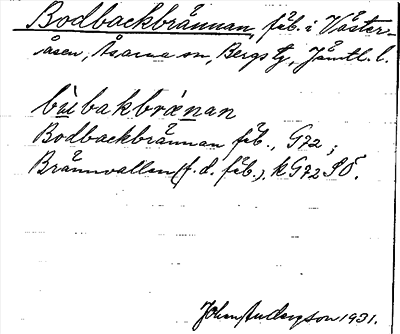 Bodbackbrännan, fäb. i Väster-
åsen, Åsarna sn, Bergs tg, Jämtl. l.
bùbakbrænan
Bodbackbrännan fäb., G72;
Brännvallen (f.d. fäb.), k G72 SÖ.
John Anderzson 1931.